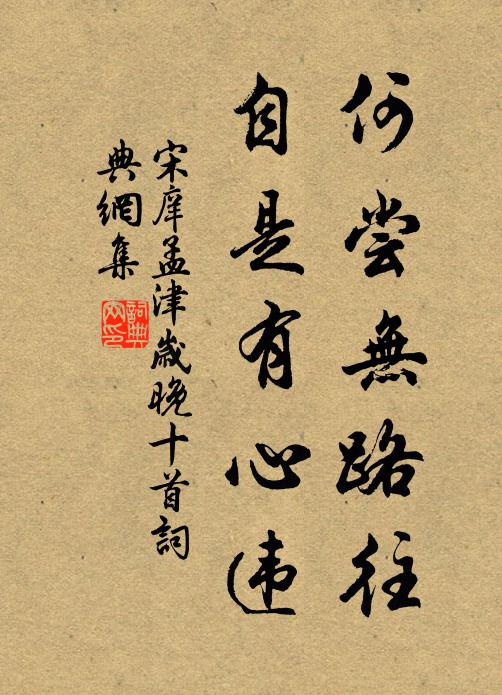 何尝無路往
自是有心违
宋庠孟津歲晚十首詞
典網集
詞典
网印